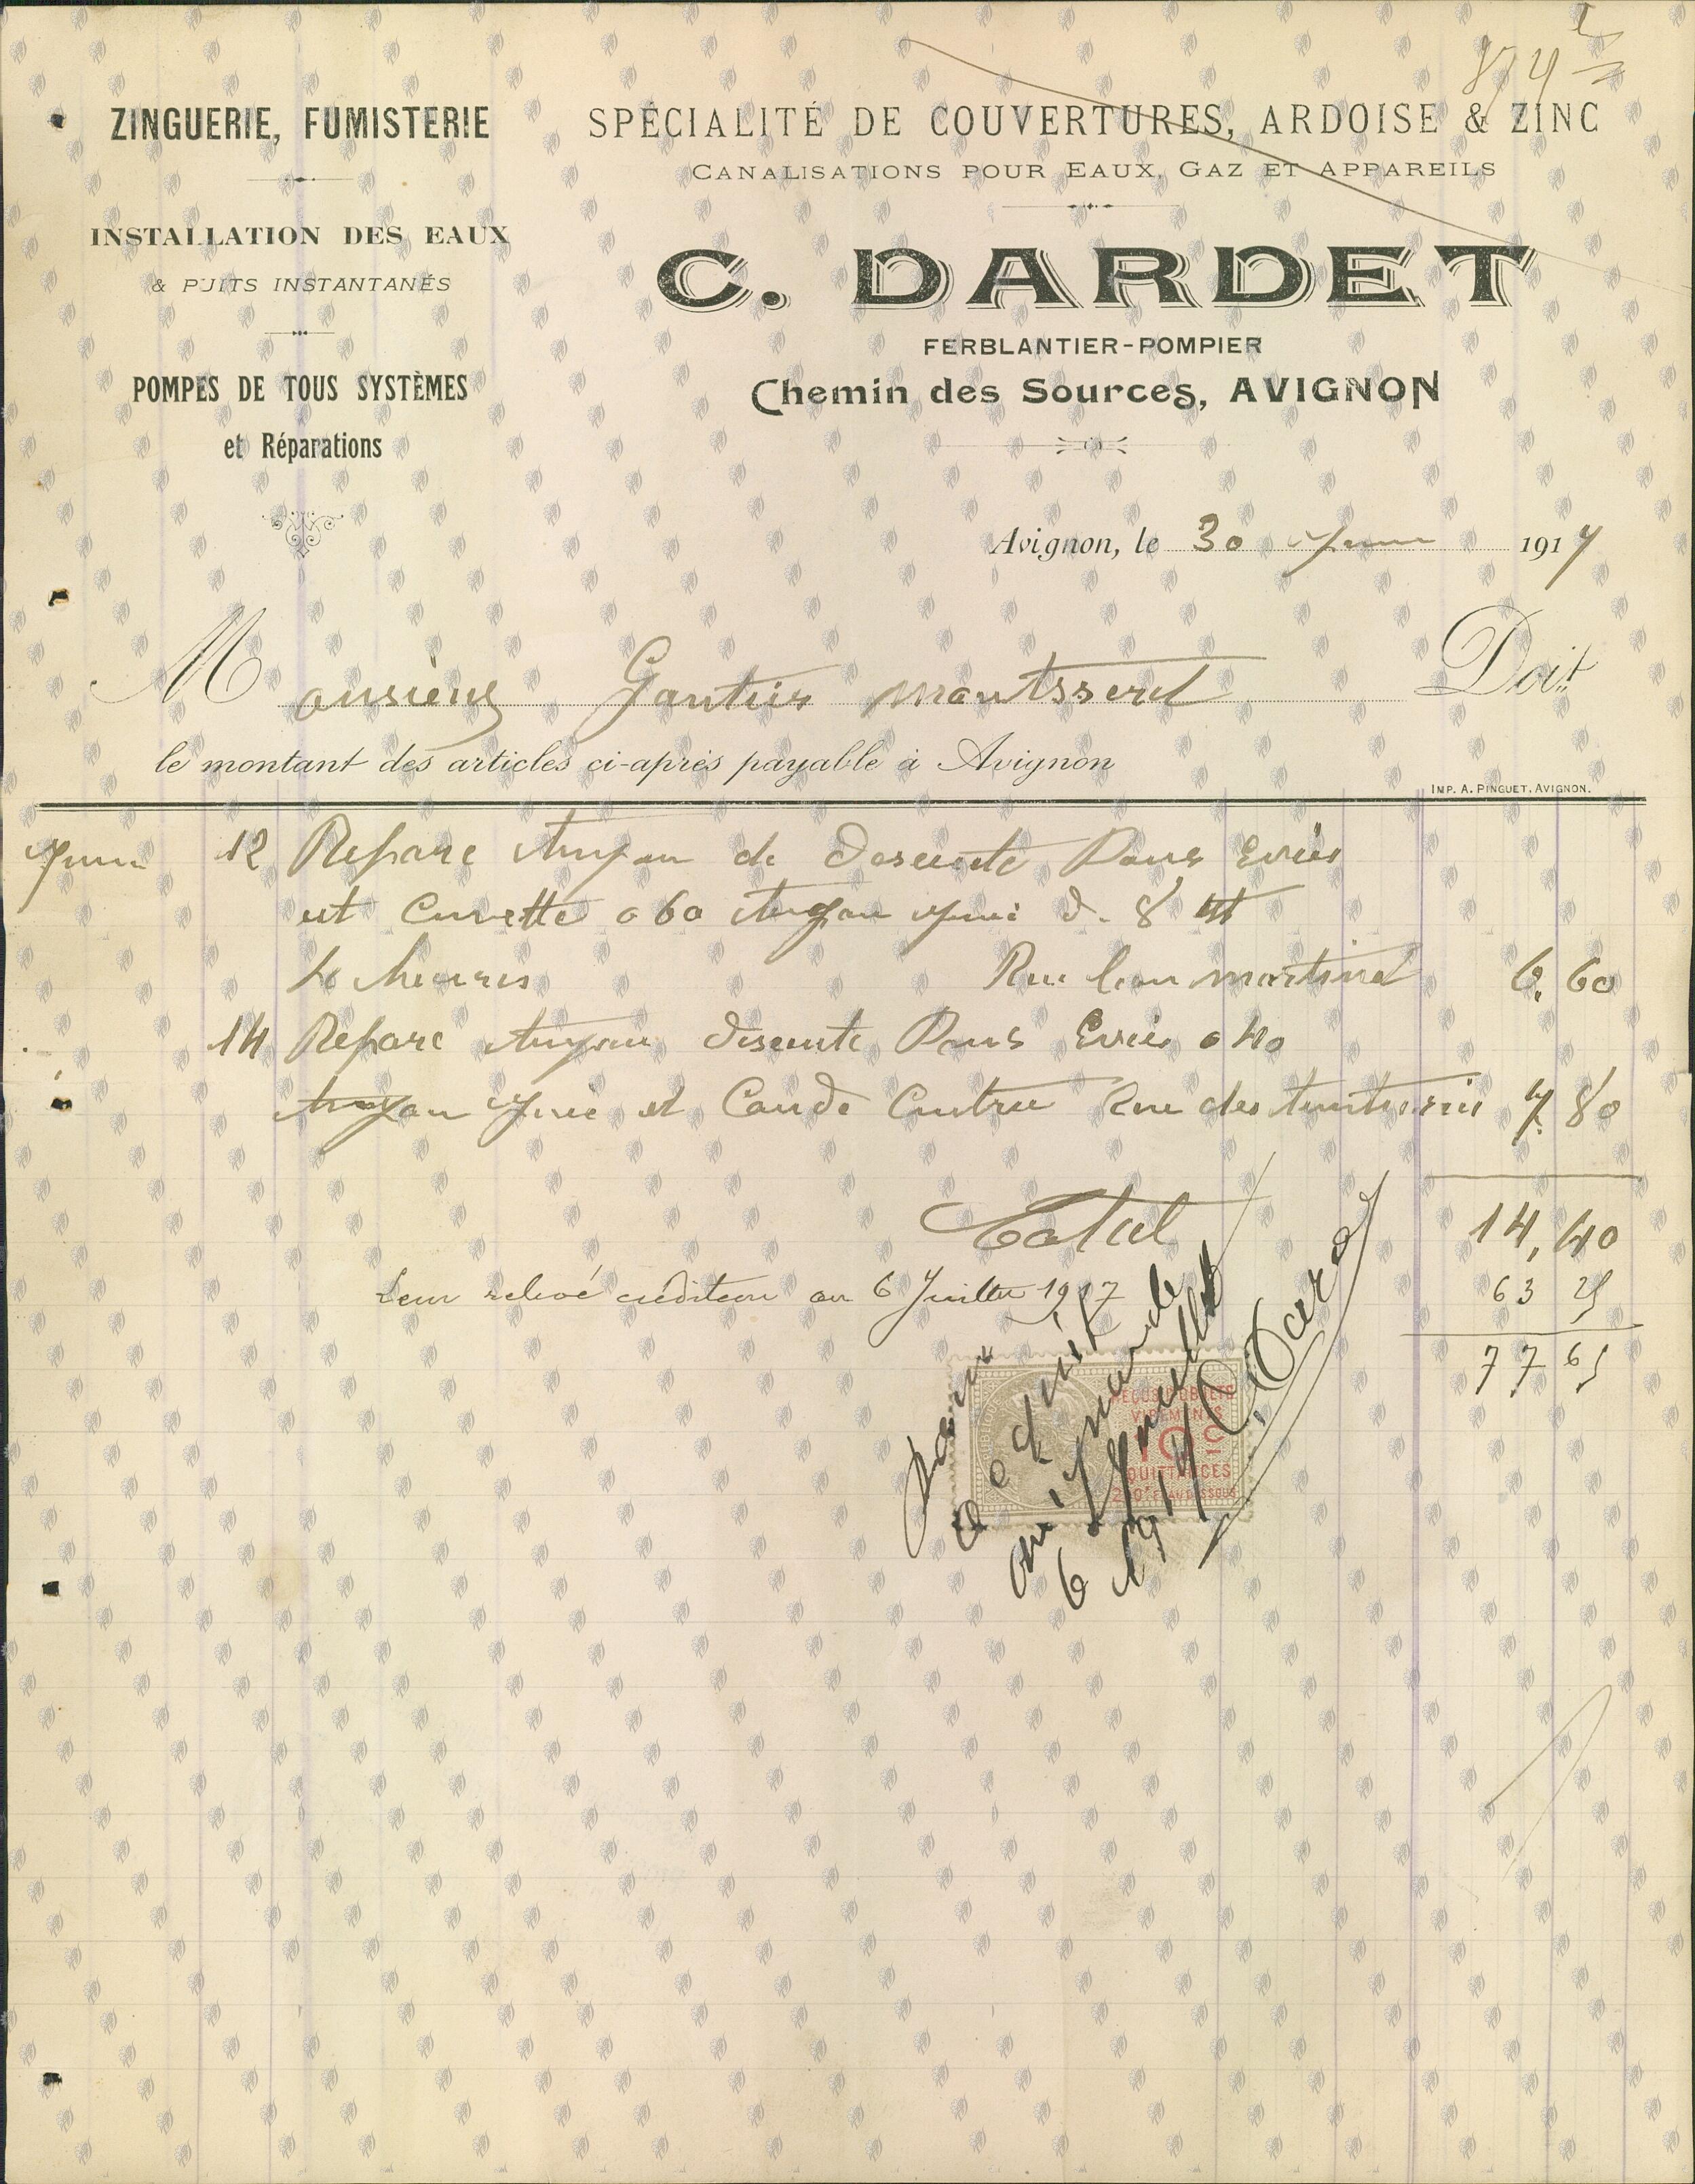 874
ZINGUERIE, FUMISTERIE
INSTALLATION DES EAUX
& PUITS INSTANTANÉS
POMPES DE TOUS SYSTÈMES
et Réparations
SPÉCIALITÉ DE COUVERTURES, ARDOISE & ZINC
CANALISATIONS POUR EAUX, GAZ ET APPAREILS
C. DARDET
FERBLANTIER-POMPIER
Chemin des Sources, AVIGNON
Avignon, le 30 Juin 1917
Monsieur Gautier montsseret Doit
le montant des articles ci-après payable à Avignon
IMP. A. PINGUET, AVIGNON.
Juin 12 Reparé tuyau de descente Pour Evier
et Cuvette 0 60 tuyau
4 heures Rue martinet 6. 60
14 Reparé tuyau descente Pour Evier 0 40
tuyau et Rue des teinturier 7. 80
Total 14, 40
Leur relevé créditeur au 6 Juillet 1917 63 25
77 65
Pour
acquit
6 Juillet
1917
REÇUS D'OBJETS
VIREMENTS
10c
QUITTANCES